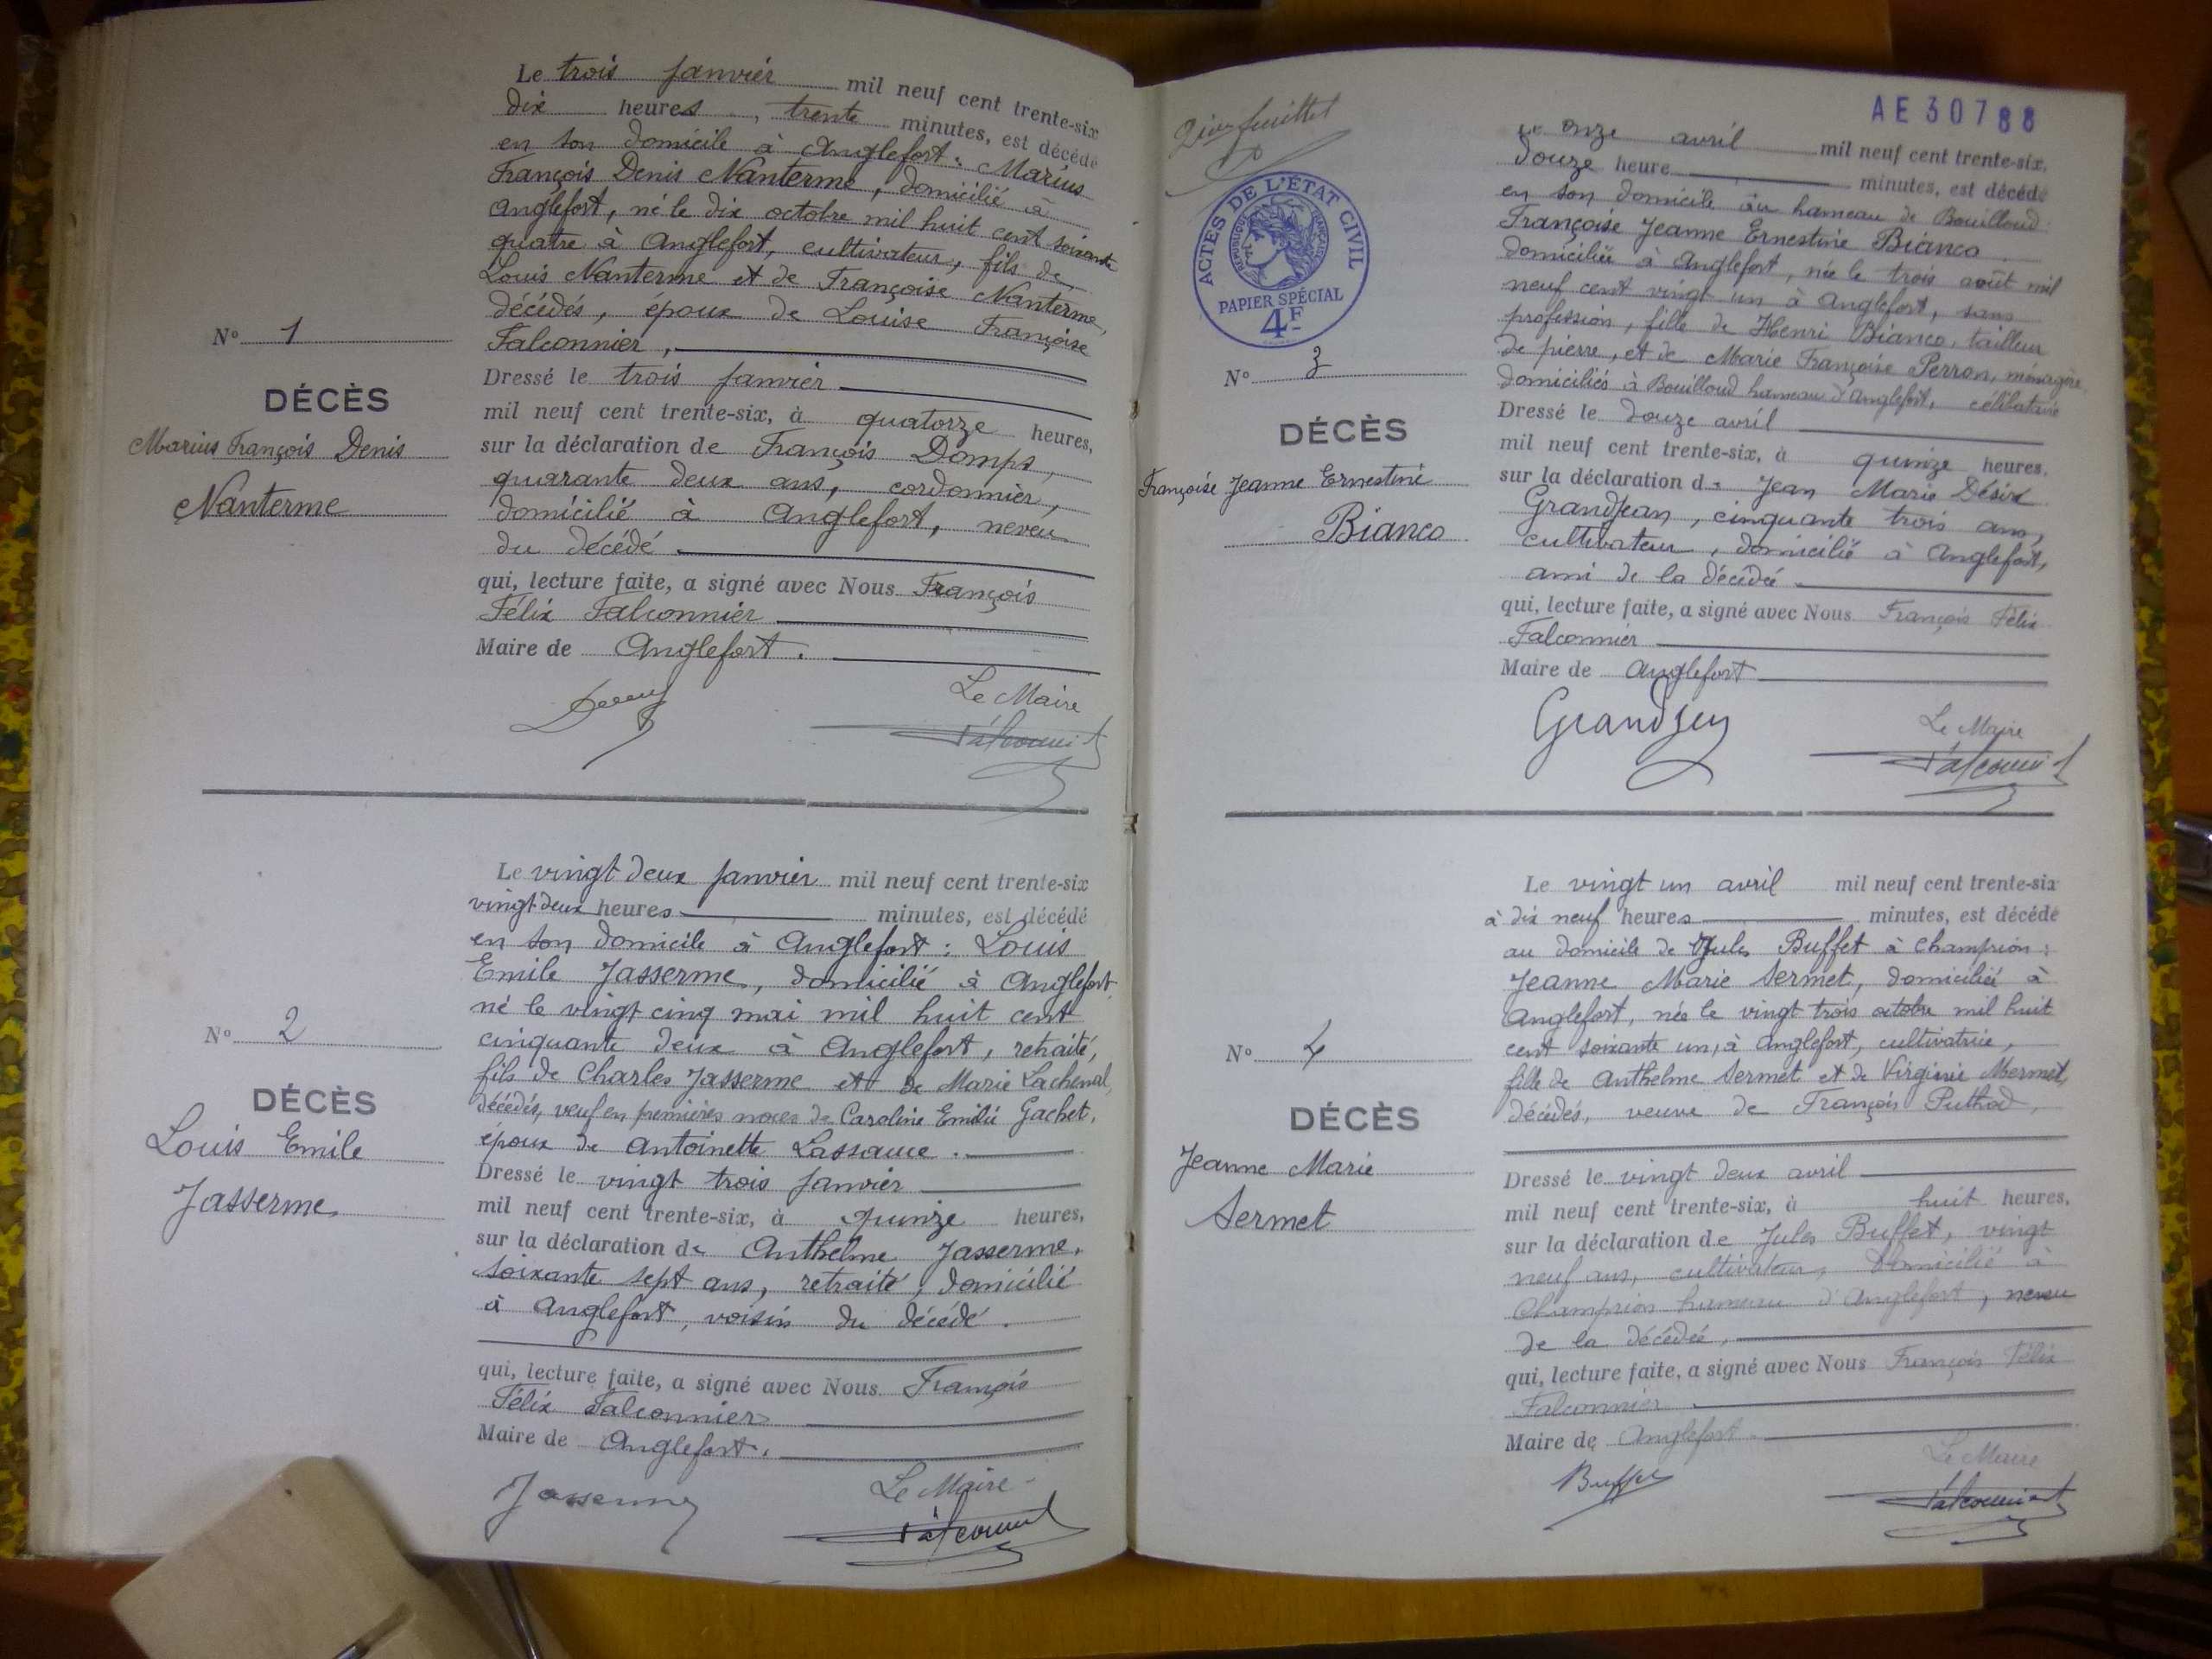 Le trois janvier mil neuf cent trente-six
dix heures, trente minutes, est décédé
en son domicile à Anglefort : Marius
François Denis Nanterme, domicilié à
Anglefort, né le dix octobre mil huit cent soixante
quatre à Anglefort, cultivateur, fils de
Louis Nanterme et de Françoise Nanterme,
décédés, époux de Louise Françoise
Falconnier,
N° 1
DÉCÈS
Marius François Denis
Nanterme
Dressé le trois janvier
mil neuf cent trente-six, à quatorze heures,
sur la déclaration de François Domps,
quarante deux ans, cordonnier,
domicilié à Anglefort, neveu
du décédé
qui, lecture faite, a signé avec Nous François
Félix Falconnier
Maire de Anglefort.
Le Maire
Falconnier
Le vingt deux janvier mil neuf cent trente-six
vingt deux heures minutes, est décédé
en son domicile à Anglefort : Louis
Emile Jasserme, domicilié à Anglefort,
né le vingt cinq mai mil huit cent
cinquante deux à Anglefort, retraité,
fils de Charles Jasserme et de Marie Lachenal,
décédés, veuf en premières noces de Caroline Emilie Gachet,
époux de Antoinette Lassauce.
N° 2
DÉCÈS
Louis Emile
Jasserme
Dressé le vingt trois janvier
mil neuf cent trente-six, à quinze heures,
sur la déclaration de Anthelme Jasserme,
soixante sept ans, retraité, domicilié
à Anglefort, voisin du décédé.
qui, lecture faite, a signé avec Nous François
Félix Falconnier
Maire de Anglefort.
Jasserme
Le Maire
Falconnier
feuillet
AE30788
ACTES DE L'ÉTAT CIVIL
RÉPUBLIQUE FRANÇAISE
PAPIER SPÉCIAL
4F
Le onze avril mil neuf cent trente-six,
douze heure minutes, est décédé
en son domicile au hameau de Bouilloud
Françoise Jeanne Ernestine Bianco
domiciliée à Anglefort, née le trois août mil
neuf cent vingt un à Anglefort, sans
profession, fille de Henri Bianco, tailleur
de pierre, et de Marie Françoise Perron, ménagère
domiciliés à Bouilloud hameau d'Anglefort, célibataire
N° 3
DÉCÈS
Françoise Jeanne Ernestine
Bianco
Dressé le douze avril
mil neuf cent trente-six, à quinze heures.
sur la déclaration de Jean Marie Désiré
Grandjean, cinquante trois ans,
cultivateur, domicilié à Anglefort,
ami de la décédée
qui, lecture faite, a signé avec Nous François Félix
Falconnier
Maire de Anglefort
Grandjean
Le Maire
Falconnier
Le vingt un avril mil neuf cent trente-six
à dix neuf heures minutes, est décédé
au domicile de Jules Buffet à Champrion :
Jeanne Marie Sermet, domiciliée à
Anglefort, née le vingt trois octobre mil huit
cent soixante un, à Anglefort, cultivatrice,
fille de Anthelme Sermet et de Virginie Mermet,
décédés, veuve de François Puthod,
N° 4
DÉCÈS
Jeanne Marie
Sermet
Dressé le vingt deux avril
mil neuf cent trente-six, à huit heures,
sur la déclaration de Jules Buffet, vingt
neuf ans, cultivateur, domicilié à
Champrion hameau d'Anglefort, neveu
de la décédée,
qui, lecture faite, a signé avec Nous François Félix
Falconnier
Maire de Anglefort
Buffet
Le Maire
Falconnier